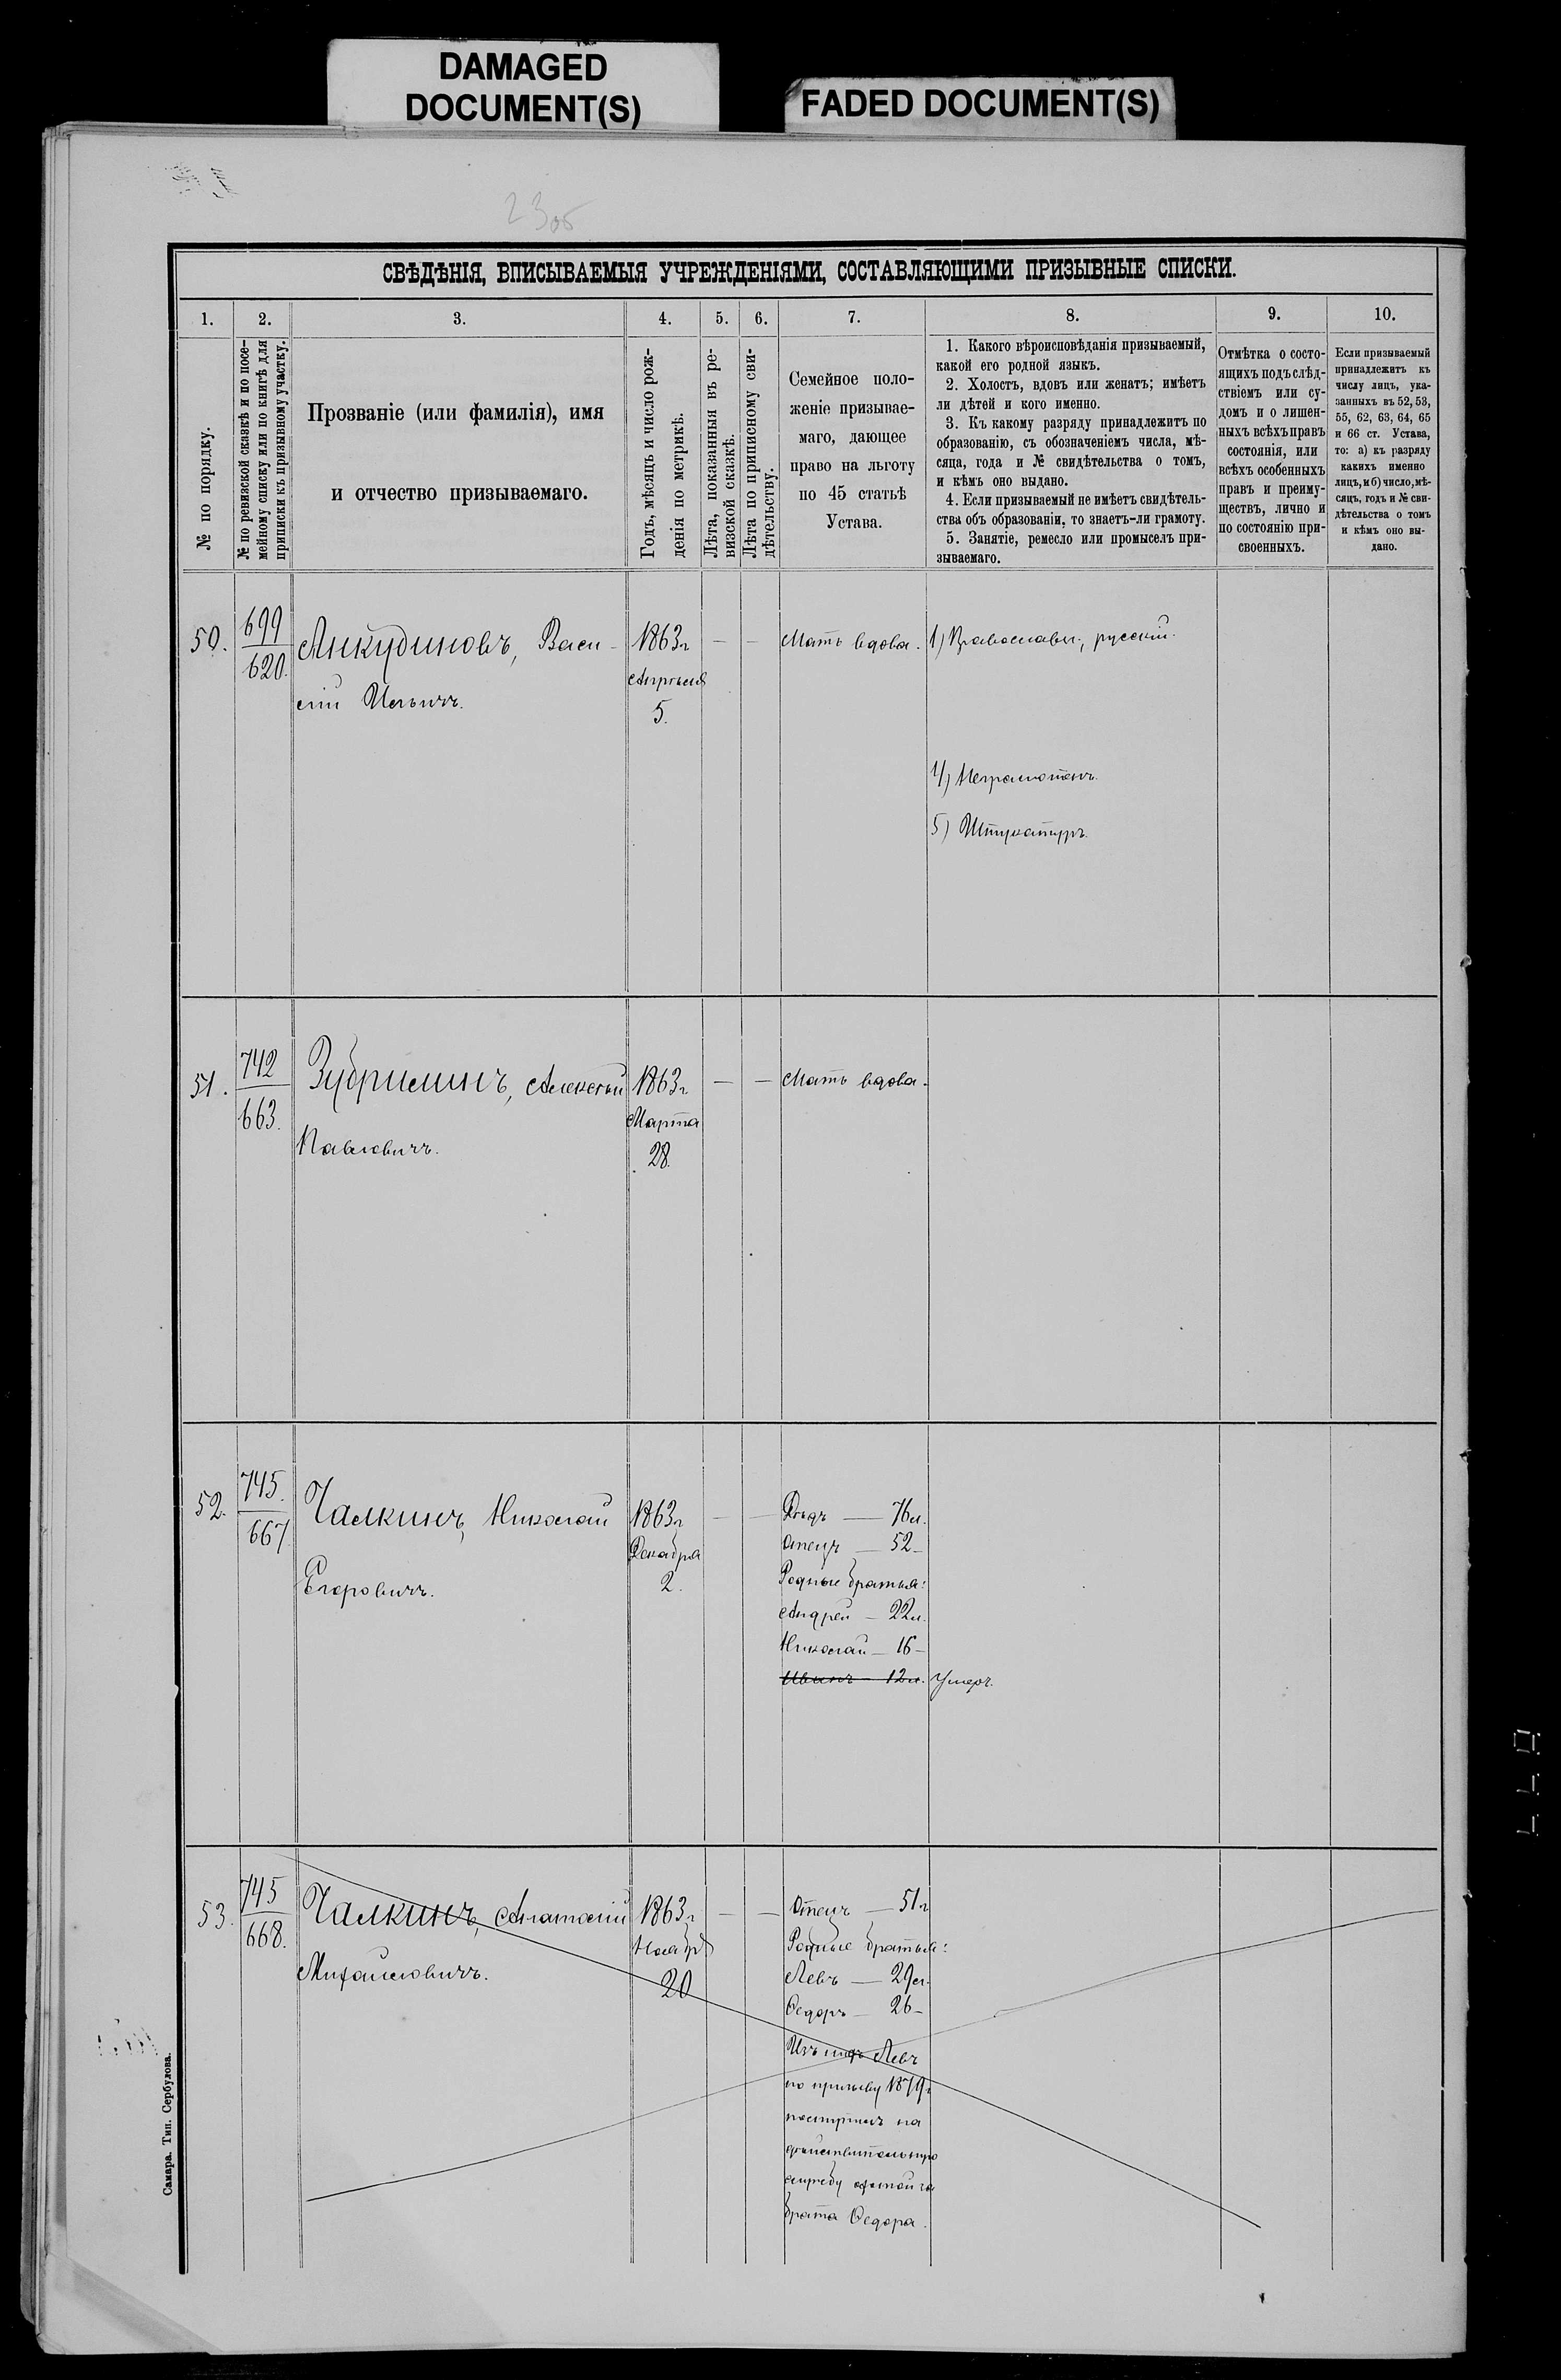 DAMAGED
DOCUMENT(S)
FADED DOCUMENT(S)
23об
СВѢДѢНІЯ, ВПИСЫВАЕМЫЯ УЧРЕЖДЕНІЯМИ, СОСТАВЛЯЮЩИМИ ПРИЗЫВНЫЕ СПИСКИ.
1. 2. 3. 4. 5. 6. 7. 8. 9. 10.
№ по порядку.
№ по ревизской сказкѣ и по посе-
мейному списку или по книгѣ для
приписки къ призывному участку.
Прозваніе (или фамилія), имя
и отчество призываемаго.
Годъ, мѣсяцъ и число рож-
денія по метрикѣ.
Лѣта, показанныя въ ре-
визской сказкѣ.
Лѣта по приписному сви-
дѣтельству.
Семейное поло-
женіе призывае-
маго, дающее
право на льготу
по 45 статьѣ
Устава.
1. Какого вѣроисповѣданія призываемый,
какой его родной языкъ.
2. Холостъ, вдовъ или женатъ; имѣетъ
ли дѣтей и кого именно.
3. Къ какому разряду принадлежитъ по
образованію, съ обозначеніемъ числа, мѣ-
сяца, года и № свидѣтельства о томъ,
и кѣмъ оно выдано.
4. Если призываемый не имѣетъ свидѣтель-
ства объ образованіи, то знаетъ-ли грамоту.
5. Занятіе, ремесло или промыселъ при-
зываемаго.
Отмѣтка о состо-
ящихъ подъ слѣд-
ствіемъ или су-
домъ и о лишен-
ныхъ всѣхъ правъ
состоянія, или
всѣхъ особенныхъ
правъ и преиму-
ществъ, лично и
по состоянію при-
своенныхъ.
Если призываемый
принадлежитъ къ
числу лицъ, ука-
занныхъ въ 52, 53,
55, 62, 63, 64, 65
и 66 ст. Устава,
то: а) къ разряду
какихъ именно
лицъ, и б) число, мѣ-
сяцъ, годъ и № сви-
дѣтельства о томъ
и кѣмъ оно вы-
дано.
50.
699
620.
Анкудиновъ, Васи-
лій Ильичъ.
1863г
Апрѣля
5.
— —
Мать вдова.
1) Православн., русскій.
4) Неграмотенъ.
5) Штукатуръ.
51.
742
663.
Зубрилинъ, Алексѣй
Павловичъ.
1863г
Марта
28.
— —
Мать вдова.
52.
745.
667
Чалкинъ, Николай
Егоровичъ.
1863г
Декабря
2.
— —
Дѣдъ — 76л.
Отецъ — 52 –
Родные братья:
Андрей — 22л.
Николай — 16 –
Иванъ — 12л. Умеръ.
53.
745
668.
Чалкинъ, Анатолій
Михайловичъ.
1863г
Ноябр
20
— —
Отецъ — 51г
Родные братья:
Левъ — 29л.
Ѳедоръ — 26 –
Изъ нихъ Левъ
по призыву 1879г
поступилъ на
дѣйствительную
службу охотой за
брата Ѳедора.
Самара. Тип. Сербулова.